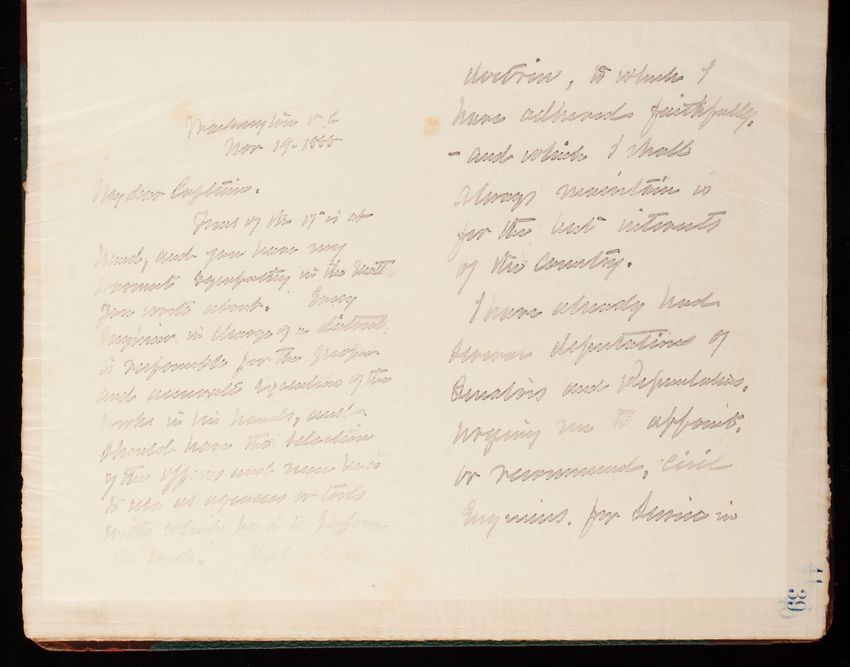 Washington D.C.
Nov 19. 1866
My dear Captain.
Yours of the 17" is at
hand, and you have my
warmest sympathy in the matter
you write about. Every
Engineer in charge of a district,
is responsible for the proper
and accurate execution of the
works in his hands, and
should have the selection
of the officers and men he is
to use as agencies or tools
with which he is to perform
the work. That
doctrine, to which I
have adhered faithfully,
- and which I shall
always maintain is
for the best interests
of the country.
I have already had
several deputations of
Senators and Representatives,
urging me to appoint,
or recommend, civil
Engineers. for Service in
39
41